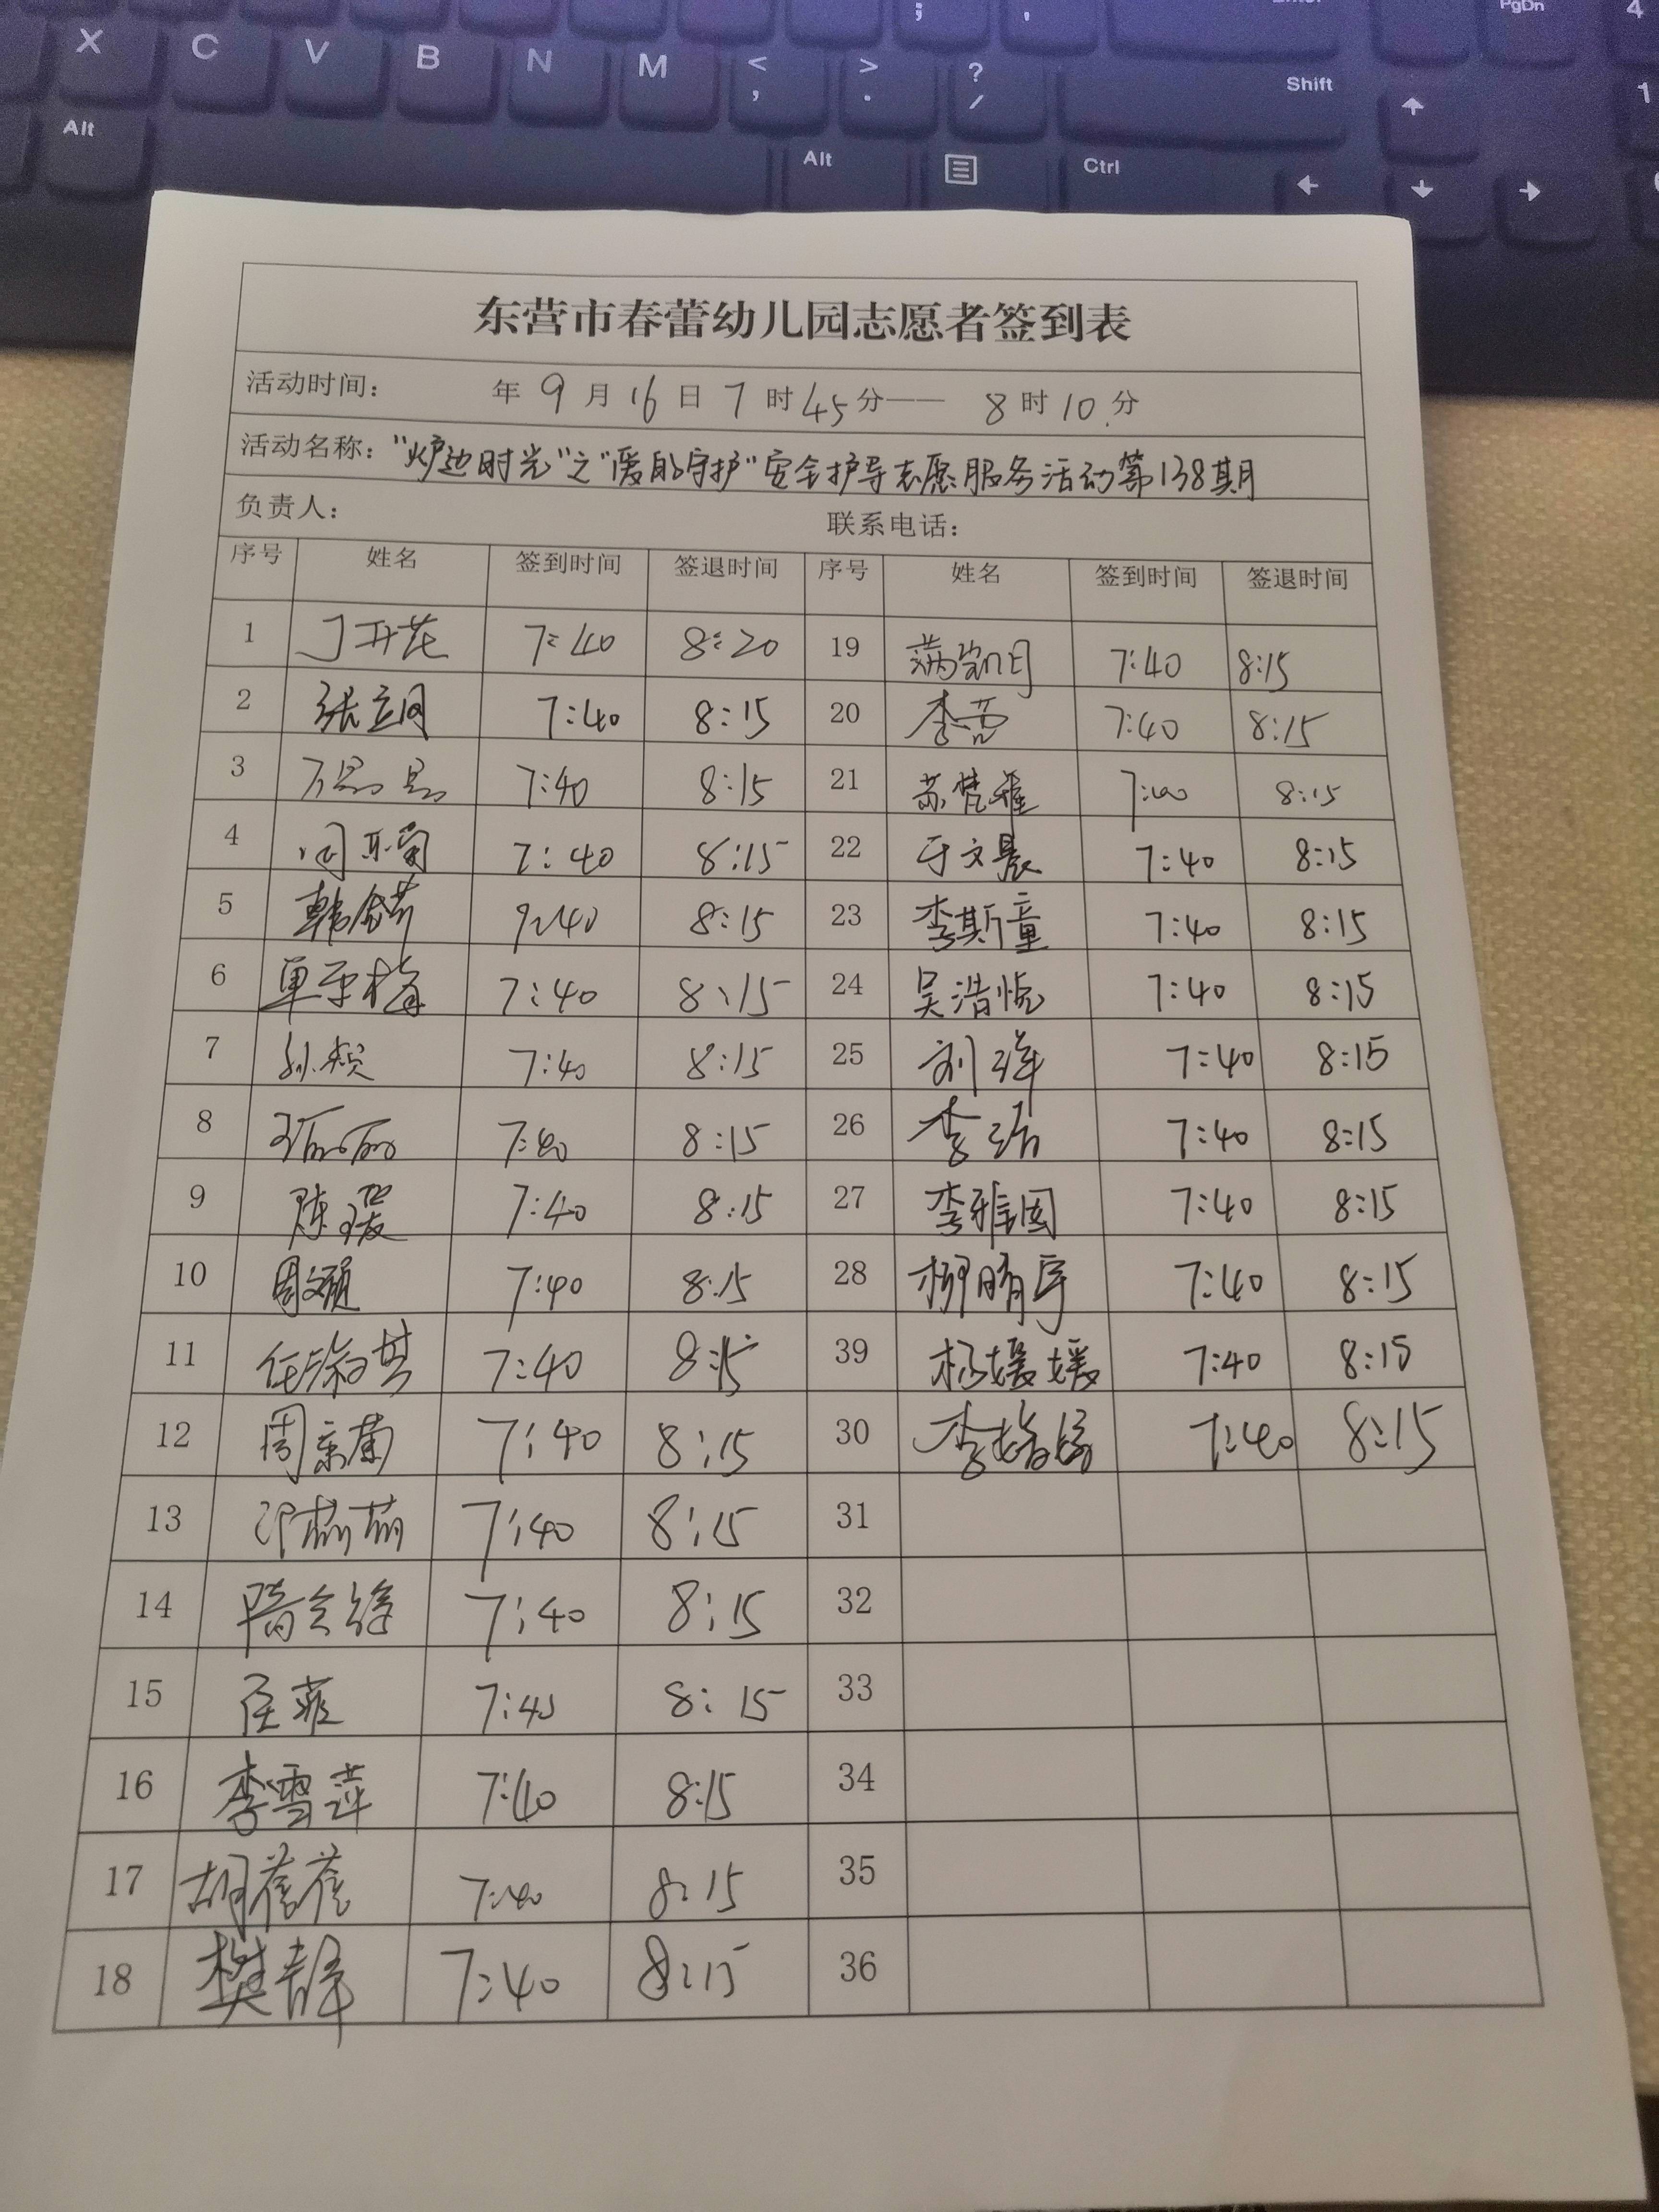 X C V B N M < , > . ? / ; ' Enter PgDn 4
Alt Alt Ctrl Shift 1
东营市春蕾幼儿园志愿者签到表
活动时间: 年 9 月 16 日 7 时 45 分—— 8 时 10 分
活动名称: "炉边时光"之"爱的守护"安全护导志愿服务活动第138期
负责人: 联系电话:
序号 姓名 签到时间 签退时间 序号 姓名 签到时间 签退时间
1 丁开花 7:40 8:20 19 7:40 8:15
2 7:40 8:15 20 7:40 8:15
3 7:40 8:15 21 苏梵雅 7:40 8:15
4 7:40 8:15 22 于文晨 7:40 8:15
5 8:15 23 李斯童 7:40 8:15
6 7:40 8:15 24 吴浩悦 7:40 8:15
7 7:40 8:15 25 7:40 8:15
8 7:40 8:15 26 7:40 8:15
9 陈瑷 7:40 8:15 27 7:40 8:15
10 7:40 8:15 28 7:40 8:15
11 7:40 8:15 39 杨媛媛 7:40 8:15
12 周京菊 7:40 8:15 30 7:40 8:15
13 7:40 8:15 31
14 7:40 8:15 32
15 7:40 8:15 33
16 李雪萍 7:40 8:15 34
17 7:40 8:15 35
18 樊静 7:40 8:15 36